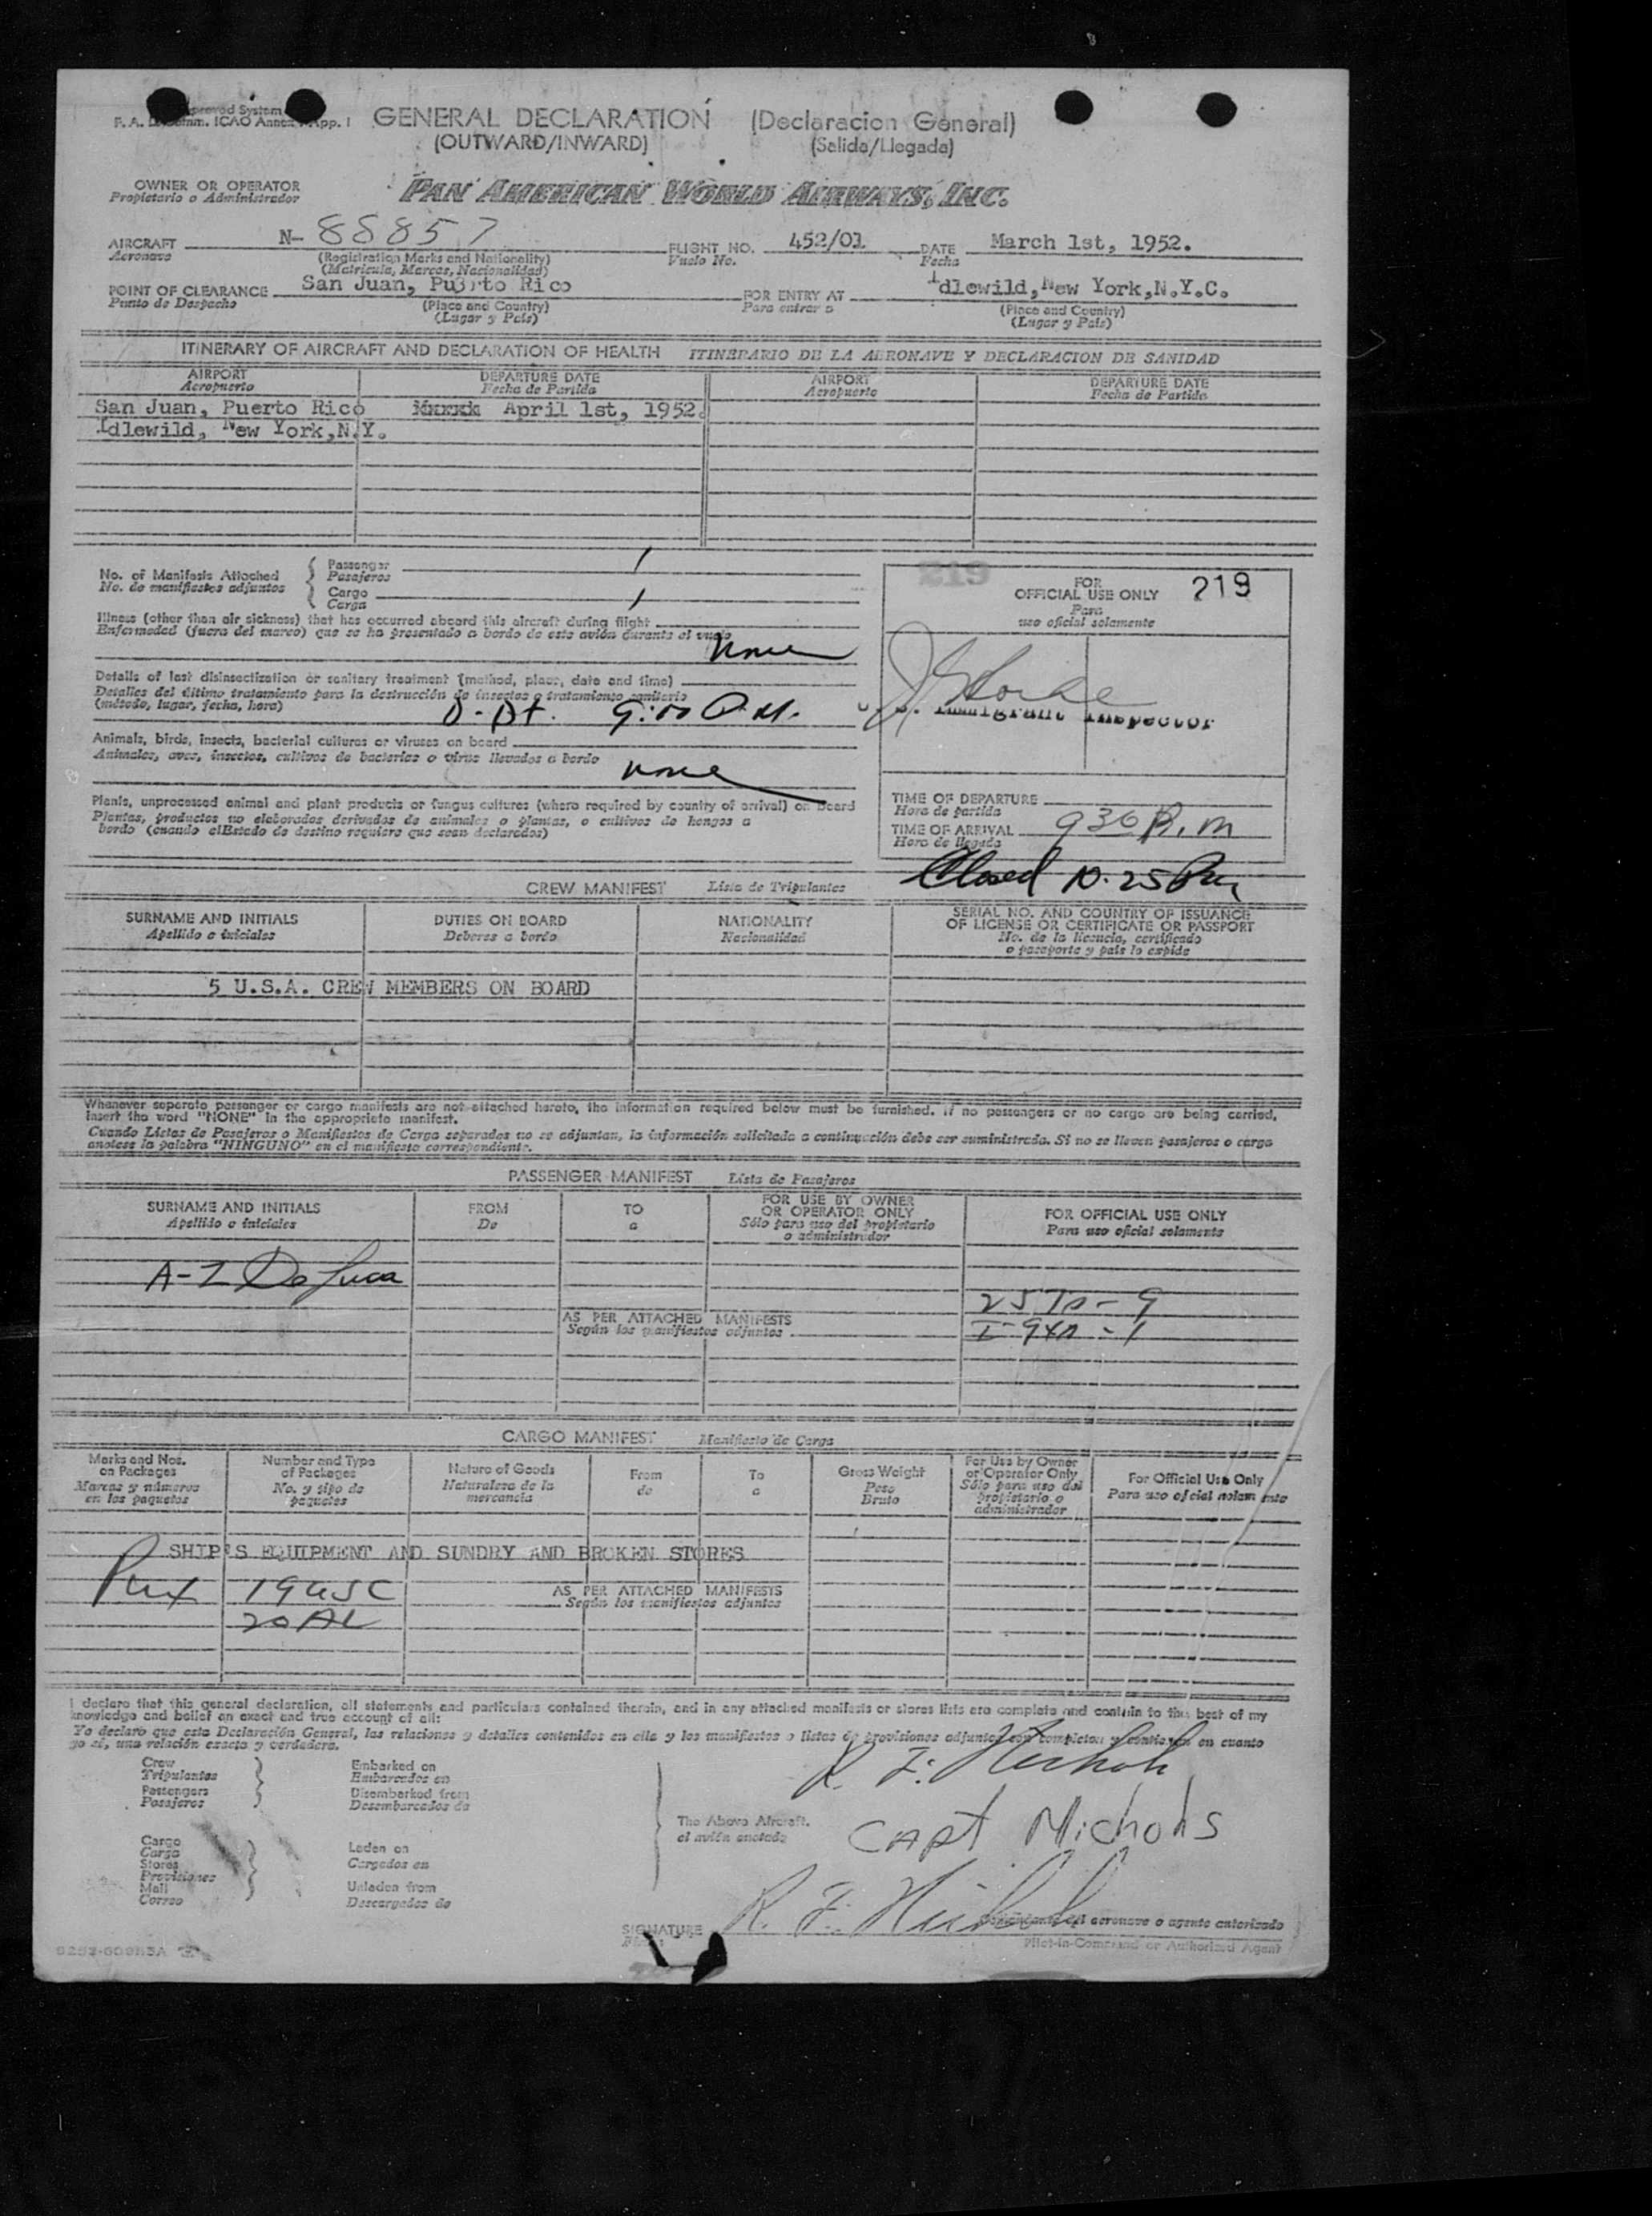 GENERAL DECLARATION (Declaracion General)
F. A. ICAO Annex App. 1
(OUTWARD/INWARD) (Salida/Llegada)
OWNER OR OPERATOR
Propietario o Administrador
PAN AMERICAN WORLD AIRWAYS, INC.
AIRCRAFT N- 88857 FLIGHT NO. 452/01 DATE March 1st, 1952.
Aeronave (Registration Marks and Nationality) Vuelo No. Fecha
(Matricula, Marcas, Nacionalidad)
POINT OF CLEARANCE San Juan, Puerto Rico FOR ENTRY AT Idlewild, New York, N.Y.C.
Punto de Despacho (Place and Country) Para entrar a (Place and Country)
(Lugar y Pais) (Lugar y Pais)
ITINERARY OF AIRCRAFT AND DECLARATION OF HEALTH ITINERARIO DE LA AERONAVE Y DECLARACION DE SANIDAD
AIRPORT DEPARTURE DATE AIRPORT DEPARTURE DATE
Aeropuerto Fecha de Partida Aeropuerto Fecha de Partida
San Juan, Puerto Rico April 1st, 1952.
Idlewild, New York, N.Y.
No. of Manifests Attached Passenger 1
No. de manifiestos adjuntos Pasajeros
Cargo 1
Carga
Illness (other than air sickness) that has occurred aboard this aircraft during flight
Enfermedad (fuera del mareo) que se ha presentado a bordo de este avión durante el vuelo
None
Details of last disinsectization or sanitary treatment (method, place, date and time)
Detalles del último tratamiento para la destrucción de insectos o tratamiento sanitario
(método, lugar, fecha, hora) 9:00 P.M.
Animals, birds, insects, bacterial cultures or viruses on board
Animales, aves, insectos, cultivos de bacterias o virus llevados a bordo
None
Plants, unprocessed animal and plant products or fungus cultures (where required by country of arrival) on board
Plantas, productos no elaborados derivados de animales o plantas, o cultivos de hongos a
bordo (cuando el Estado de destino requiera que sean declarados)
219
FOR
OFFICIAL USE ONLY 219
Para
uso oficial solamente
Immigrant Inspector
TIME OF DEPARTURE
Hora de partida
TIME OF ARRIVAL 930 P.m
Hora de llegada
Closed 10.25 Pm
CREW MANIFEST Lista de Tripulantes
SURNAME AND INITIALS DUTIES ON BOARD NATIONALITY SERIAL NO. AND COUNTRY OF ISSUANCE
OF LICENSE OR CERTIFICATE OR PASSPORT
Apellido o iniciales Deberes a bordo Nacionalidad No. de la licencia, certificado
o pasaporte y pais lo expide
5 U.S.A. CREW MEMBERS ON BOARD
Whenever separate passenger or cargo manifests are not attached hereto, the information required below must be furnished. If no passengers or no cargo are being carried,
insert the word "NONE" in the appropriate manifest.
Cuando Listas de Pasajeros o Manifiestos de Carga separados no se adjuntan, la información solicitada a continuación debe ser suministrada. Si no se llevan pasajeros o carga
anótese la palabra "NINGUNO" en el manifiesto correspondiente.
PASSENGER MANIFEST Lista de Pasajeros
SURNAME AND INITIALS FROM TO FOR USE BY OWNER OR OPERATOR ONLY FOR OFFICIAL USE ONLY
Apellido o iniciales De a Sólo para uso del propietario o administrador Para uso oficial solamente
De Luca
AS PER ATTACHED MANIFESTS
Según los manifiestos adjuntos
CARGO MANIFEST Manifiesto de Carga
Marks and Nos. on Packages Number and Type of Packages Nature of Goods From To Gross Weight For Use by Owner or Operator Only For Official Use Only
Marcas y números en los paquetes No. y tipo de paquetes Naturaleza de la mercancia de a Peso Bruto Sólo para uso del propietario o administrador Para uso oficial
SHIP'S EQUIPMENT AND SUNDRY AND BROKEN STORES
19 USC
20 AL
AS PER ATTACHED MANIFESTS
Según los manifiestos adjuntos
I declare that this general declaration, all statements and particulars contained therein, and in any attached manifests or stores lists are complete and contain to the best of my
knowledge and belief an exact and true account of all:
Yo declaro que esta Declaración General, las relaciones y detalles contenidos en ella y los manifiestos o listas de provisiones adjuntos son completos y contienen en cuanto
yo sé, una relación exacta y verdadera.
Crew Embarked on
Tripulantes Embarcados en
Passengers Disembarked from
Pasajeros Desembarcados de
The Above Aircraft.
el avión anotado
Cargo
Carga Laden on
Stores Cargados en
Provisiones
Mail Unladen from
Correo Descargados de
R. F. Nichols
Capt Nichols
SIGNATURE R. F. Nichols
aeronave o agente autorizado
Pilot-in-Command or Authorized Agent